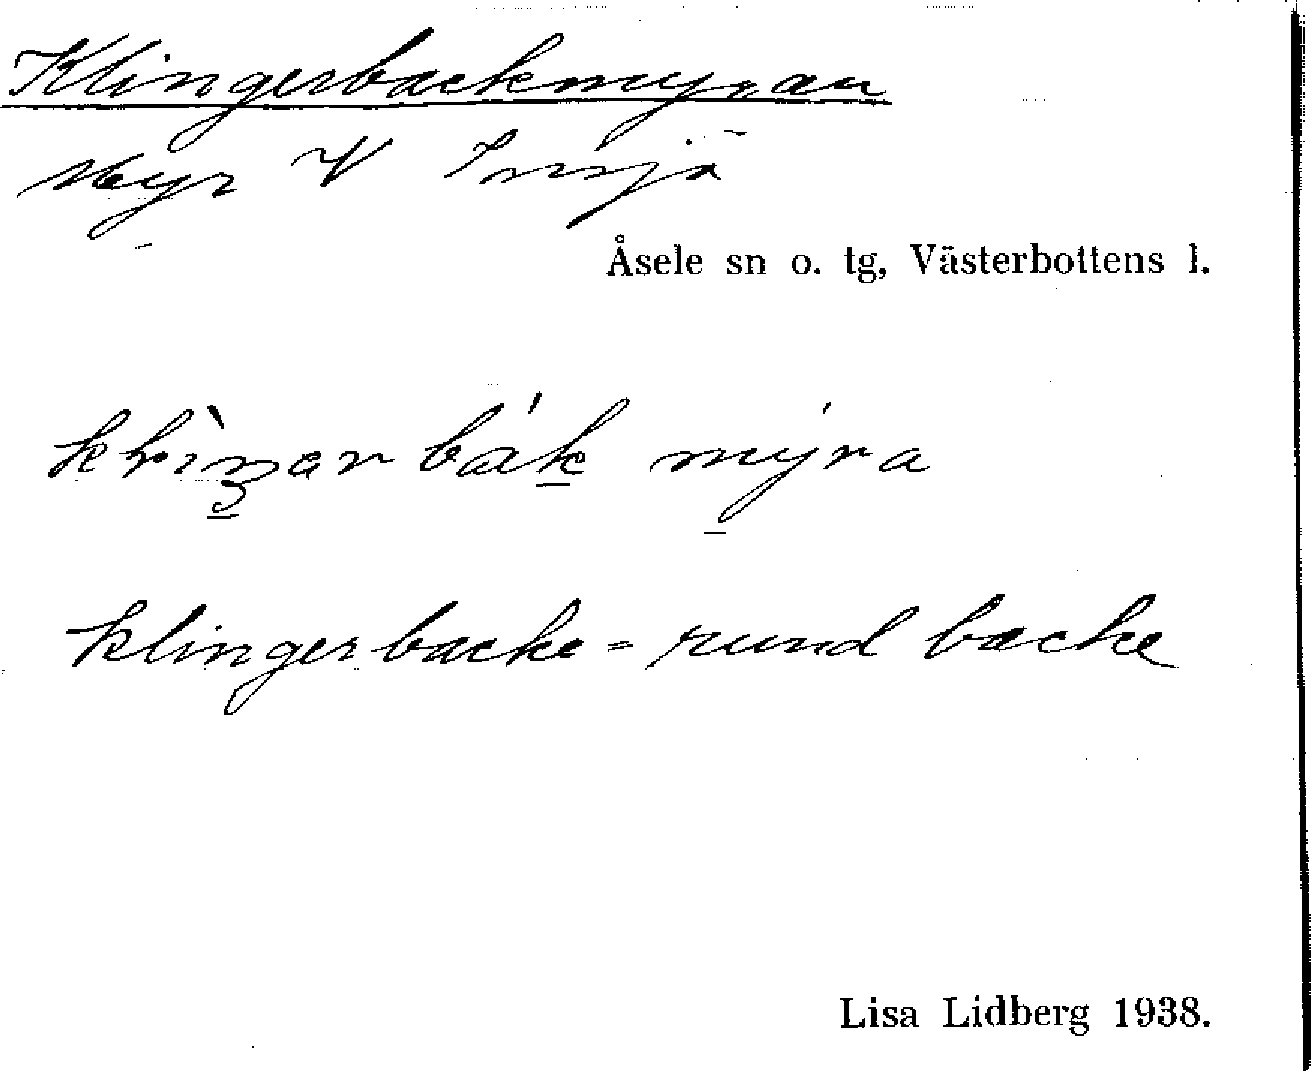 Klingerbackmyran
Myr V Insjö
Åsele sn o. tg, Västerbottens l.
bák mýra
klingerbacke = rund backe
Lisa Lidberg 1938.